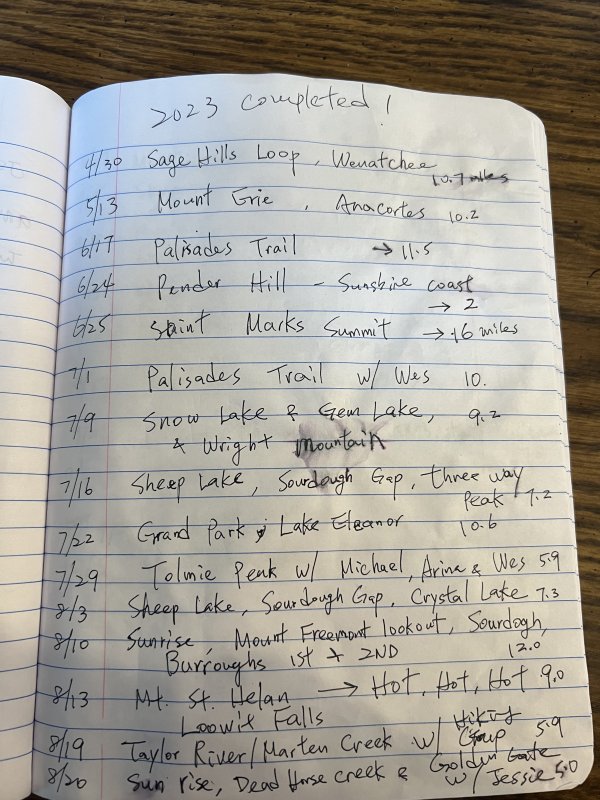 2023 completed!
4/30 Sage Hills Loop, Wenatchee
10.7 miles
5/13 Mount Erie, Anacortes 10.2
6/17 Palisades Trail → 11.5
6/24 Pender Hill - Sunshine coast
→ 2
6/25 Saint Marks Summit → 16 miles
7/1 Palisades Trail w/ Wes 10.
7/9 Snow Lake & Gem Lake, 9.2
& Wright mountain
7/16 Sheep Lake, Sourdough Gap, three way
Peak 7.2
7/22 Grand Park, Lake Eleanor 10.6
7/29 Tolmie Peak w/ Michael, Arina & Wes 5.9
8/3 Sheep Lake, Sourdough Gap, Crystal Lake 7.3
8/10 Sunrise, Mount Freemont lookout, Sourdogh,
Burroughs 1st + 2ND 12.0
8/13 Mt. St. Helan → Hot, Hot, Hot 9.0
Loowit Falls
8/19 Taylor River/Marten Creek w/ Hiking Group 5.9
8/20 Sun rise, Dead Horse creek & Golden Gate
w/ Jessie 5.0